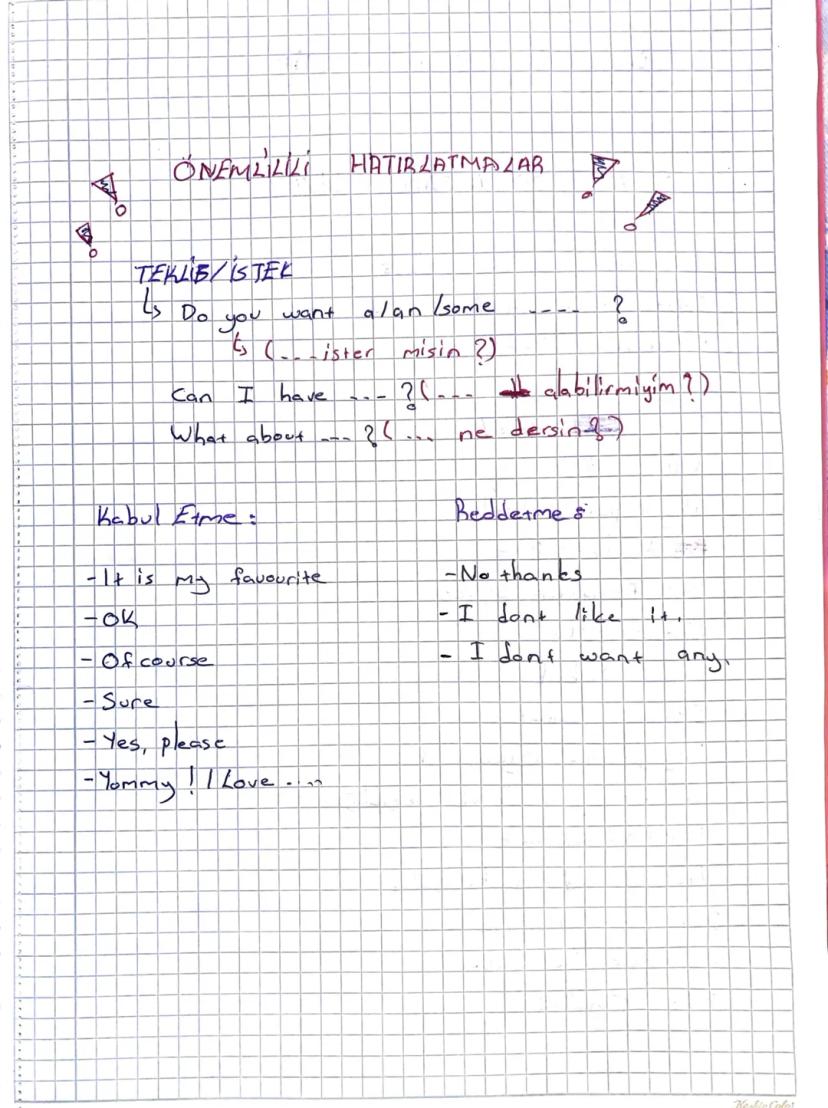 ÖNEMLİLİLİ HATIRLATMALAR
TEKLİB/İSTEK
↳ Do you want a/an/some ---- ?
↳ (... ister misin?)
Can I have ---?(... alabilirmiyim?)
What about ---?(... ne dersin?)
Kabul Etme:
-It is my favourite
-OK
-Of course
-Sure
-Yes, please
-Yommy! I Love ....
Reddetme:
-No thanks
-I dont like it.
-I dont want any.